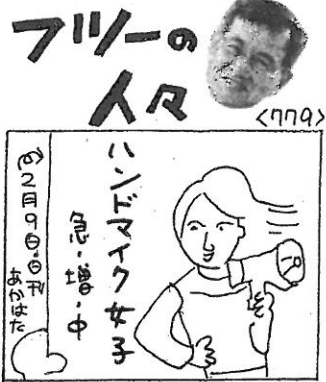 フツーの
人々
<779>
ハンドマイク女子
急・増・中
2月9日・日刊
あかはた